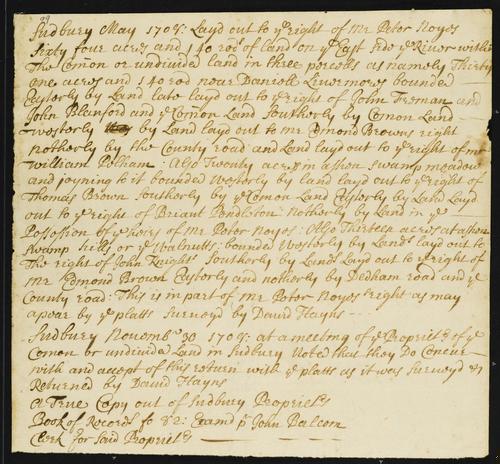 Sudbury May 1708: Layd out to ye right of Mr Peter Noyes
Sixty four acres and 140 rod of land on ye East side ye River with in
The Comon or undivided land in three percells as namely Thirty
one acres and 140 rod near Daniell Livermores bounded
Easterly by Land late layd out to ye right of John Freman and
John Blanford and ye Comon Land Southerly by Comon Land
westerly by Land layd out to Mr Edmond Browns right
notherly by the County road and Land layd out to ye right of mr
william Pelham: Also Twenty acrs in ashen swamp meadow
and joyning to it bounded westerly by land layd out to ye right of
Thomas Brown Southerly by ye Comon Land Easterly by Land Layd
out to ye right of Briant Pendleton notherly by Land in ye
Posession of ye heirs of Mr Peter Noyes: Also Thirteen acres at ashen
swamp hills or ye walnutts: bounded westerly by Land layd out to
The right of John Knight Southerly by Land Layd out to ye right of
Mr Edmond Brown Easterly and notherly by Dedham road and ye
County road: This is in part of Mr Peter Noyes right as may
apear by ye platts Surveyd by David Hayns
Sudbury Novembr 30 1708: at a meeting of ye Propriets of ye
Comon or undivided Land in Sudbury Voted that they Do Concur
with and accept of this return with ye platts as it was Surveyd &
Returned by David Hayns
A True Copy out of Sudbury Propriets
Book of Records fo 82: Examd pr John Balcom
Clerk for Said Propriets